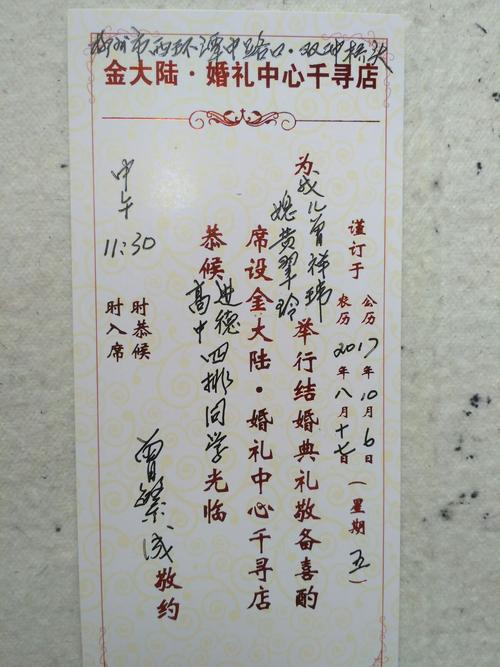 柳州市西环潭中路口·双冲桥头
金大陆·婚礼中心千寻店
谨订于
公历2017年10月6日
农历2017年八月十七日
(星期五)
为我儿曾祥玮
媳黄翠玲
举行结婚典礼敬备喜酌
席设金大陆·婚礼中心千寻店
恭候
进德
高中四排同学光临
曾繁成敬约
中午
11:30
时恭候
时入席